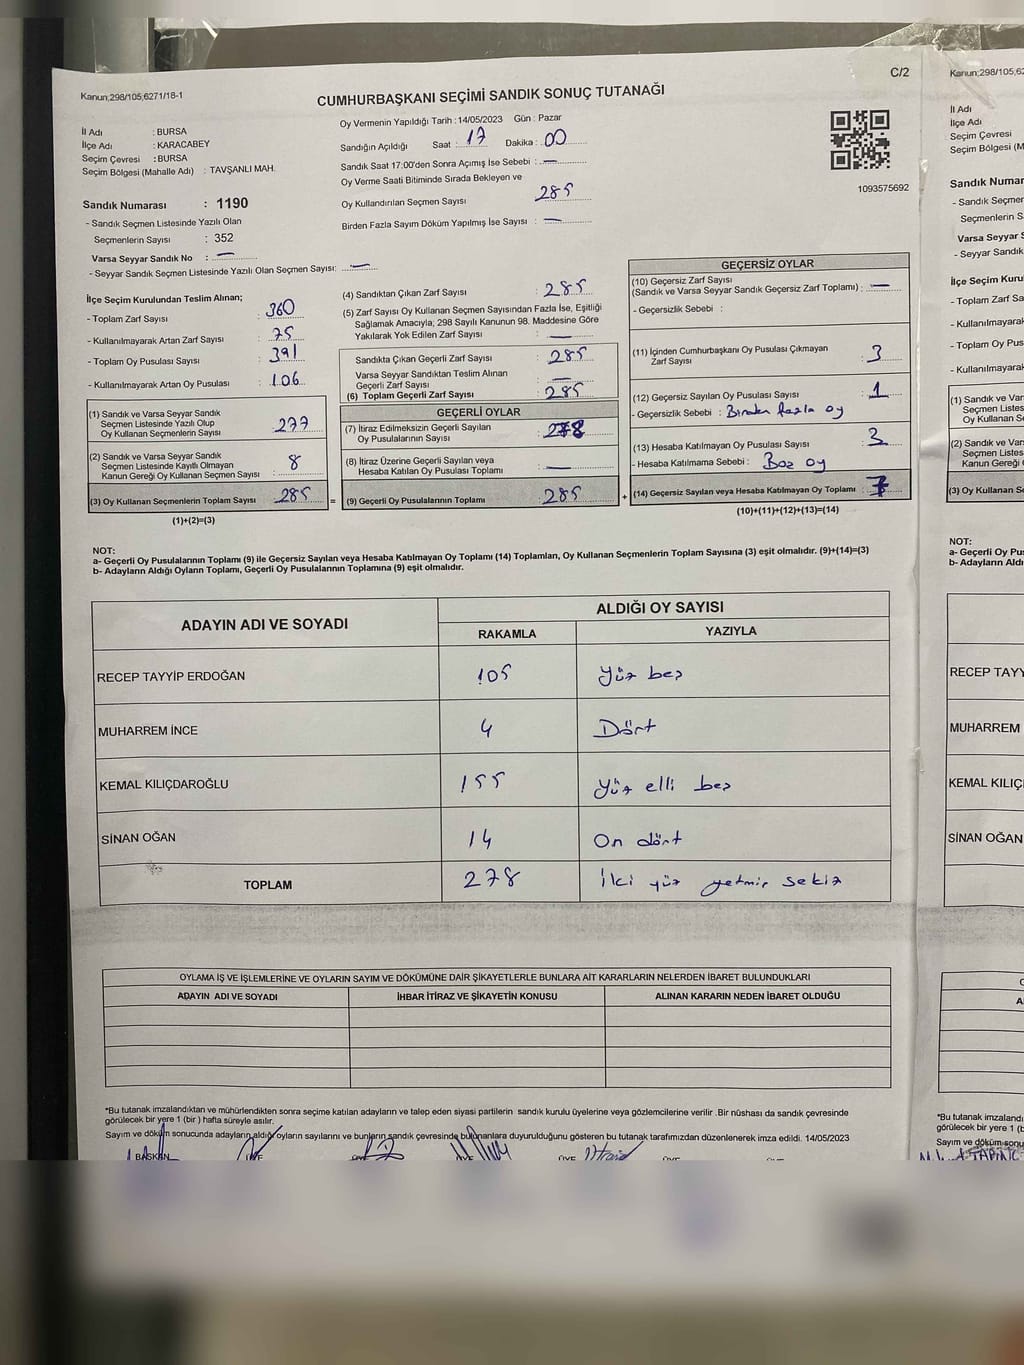 C/2
Kanun;298/105;6271/18-1
CUMHURBAŞKANI SEÇİMİ SANDIK SONUÇ TUTANAĞI
İl Adı : BURSA
İlçe Adı : KARACABEY
Seçim Çevresi : BURSA
Seçim Bölgesi (Mahalle Adı) : TAVŞANLI MAH.
Sandık Numarası : 1190
- Sandık Seçmen Listesinde Yazılı Olan
Seçmenlerin Sayısı : 352
Varsa Seyyar Sandık No : —
- Seyyar Sandık Seçmen Listesinde Yazılı Olan Seçmen Sayısı: —
Oy Vermenin Yapıldığı Tarih : 14/05/2023 Gün : Pazar
Sandığın Açıldığı Saat : 17 Dakika : 00
Sandık Saat 17:00'den Sonra Açımış İse Sebebi : —
Oy Verme Saati Bitiminde Sırada Bekleyen ve
Oy Kullandırılan Seçmen Sayısı 285
Birden Fazla Sayım Döküm Yapılmış İse Sayısı : —
1093575692
İlçe Seçim Kurulundan Teslim Alınan;
- Toplam Zarf Sayısı : 360
- Kullanılmayarak Artan Zarf Sayısı : 75
- Toplam Oy Pusulası Sayısı : 391
- Kullanılmayarak Artan Oy Pusulası : 106
(1) Sandık ve Varsa Seyyar Sandık
Seçmen Listesinde Yazılı Olup
Oy Kullanan Seçmenlerin Sayısı : 277
(2) Sandık ve Varsa Seyyar Sandık
Seçmen Listesinde Kayıtlı Olmayan
Kanun Gereği Oy Kullanan Seçmen Sayısı : 8
(3) Oy Kullanan Seçmenlerin Toplam Sayısı : 285 =
(1)+(2)=(3)
(4) Sandıktan Çıkan Zarf Sayısı : 285
(5) Zarf Sayısı Oy Kullanan Seçmen Sayısından Fazla İse, Eşitliği
Sağlamak Amacıyla, 298 Sayılı Kanunun 98. Maddesine Göre
Yakılarak Yok Edilen Zarf Sayısı : —
Sandıkta Çıkan Geçerli Zarf Sayısı : 285
Varsa Seyyar Sandıktan Teslim Alınan
Geçerli Zarf Sayısı : —
(6) Toplam Geçerli Zarf Sayısı : 285
GEÇERLİ OYLAR
(7) İtiraz Edilmeksizin Geçerli Sayılan
Oy Pusulalarının Sayısı : 278
(8) İtiraz Üzerine Geçerli Sayılan veya
Hesaba Katılan Oy Pusulası Toplamı : —
(9) Geçerli Oy Pusulalarının Toplamı : 285 +
GEÇERSİZ OYLAR
(10) Geçersiz Zarf Sayısı
(Sandık ve Varsa Seyyar Sandık Geçersiz Zarf Toplamı) : —
- Geçersizlik Sebebi :
(11) İçinden Cumhurbaşkanı Oy Pusulası Çıkmayan
Zarf Sayısı : 3
(12) Geçersiz Sayılan Oy Pusulası Sayısı : 1
- Geçersizlik Sebebi : Birden fazla oy
(13) Hesaba Katılmayan Oy Pusulası Sayısı : 3
- Hesaba Katılmama Sebebi : Boz oy
(14) Geçersiz Sayılan veya Hesaba Katılmayan Oy Toplamı : 7
(10)+(11)+(12)+(13)=(14)
NOT:
a- Geçerli Oy Pusulalarının Toplamı (9) ile Geçersiz Sayılan veya Hesaba Katılmayan Oy Toplamı (14) Toplamları, Oy Kullanan Seçmenlerin Toplam Sayısına (3) eşit olmalıdır. (9)+(14)=(3)
b- Adayların Aldığı Oyların Toplamı, Geçerli Oy Pusulalarının Toplamına (9) eşit olmalıdır.
ADAYIN ADI VE SOYADI ALDIĞI OY SAYISI
RAKAMLA YAZIYLA
RECEP TAYYİP ERDOĞAN 105 Yüz beş
MUHARREM İNCE 4 Dört
KEMAL KILIÇDAROĞLU 155 Yüz elli beş
SİNAN OĞAN 14 On dört
TOPLAM 278 İki yüz yetmiş sekiz
OYLAMA İŞ VE İŞLEMLERİNE VE OYLARIN SAYIM VE DÖKÜMÜNE DAİR ŞİKAYETLERLE BUNLARA AİT KARARLARIN NELERDEN İBARET BULUNDUKLARI
ADAYIN ADI VE SOYADI İHBAR İTİRAZ VE ŞİKAYETİN KONUSU ALINAN KARARIN NEDEN İBARET OLDUĞU
*Bu tutanak imzalandıktan ve mühürlendikten sonra seçime katılan adayların ve talep eden siyasi partilerin sandık kurulu üyelerine veya gözlemcilerine verilir .Bir nüshası da sandık çevresinde
görülecek bir yere 1 (bir ) hafta süreyle asılır.
Sayım ve döküm sonucunda adayların aldığı oyların sayılarını ve bunların sandık çevresinde bulunanlara duyurulduğunu gösteren bu tutanak tarafımızdan düzenlenerek imza edildi. 14/05/2023
BAŞKAN
Kanun;298/105;62
İl Adı
İlçe Adı
Seçim Çevresi
Seçim Bölgesi (M
Sandık Numar
- Sandık Seçmer
Seçmenlerin S
Varsa Seyyar S
- Seyyar Sandık
İlçe Seçim Kuru
- Toplam Zarf Sa
- Kullanılmayarak
- Toplam Oy Pus
- Kullanılmayarak
(1) Sandık ve Var
Seçmen Listes
Oy Kullanan S
(2) Sandık ve Var
Seçmen Liste
Kanun Gereği
(3) Oy Kullanan S
NOT:
a- Geçerli Oy Pu
b- Adayların Aldı
RECEP TAYY
MUHARREM
KEMAL KILIÇ
SİNAN OĞAN
*Bu tutanak imzaland
görülecek bir yere 1 (b
Sayım ve döküm sonu